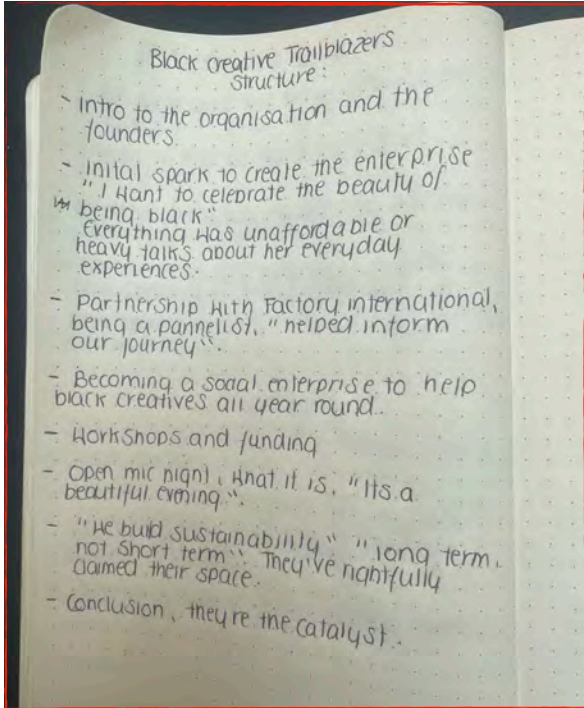 Black creative Trailblazers
structure:
- Intro to the organisation and the
founders.
- Inital spark to create the enterprise
"I want to celebrate the beauty of
being black"
Everything was unaffordable or
heavy talks about her everyday
experiences.
- Partnership with Factory international,
being a pannelist, "helped inform
our journey".
- Becoming a social enterprise to help
black creatives all year round.
- Workshops and funding
- Open mic night, what it is, "Its a
beautiful evening".
- "We build sustainability" "long term,
not short term" They've rightfully
claimed their space.
- Conclusion, theyre the catalyst.